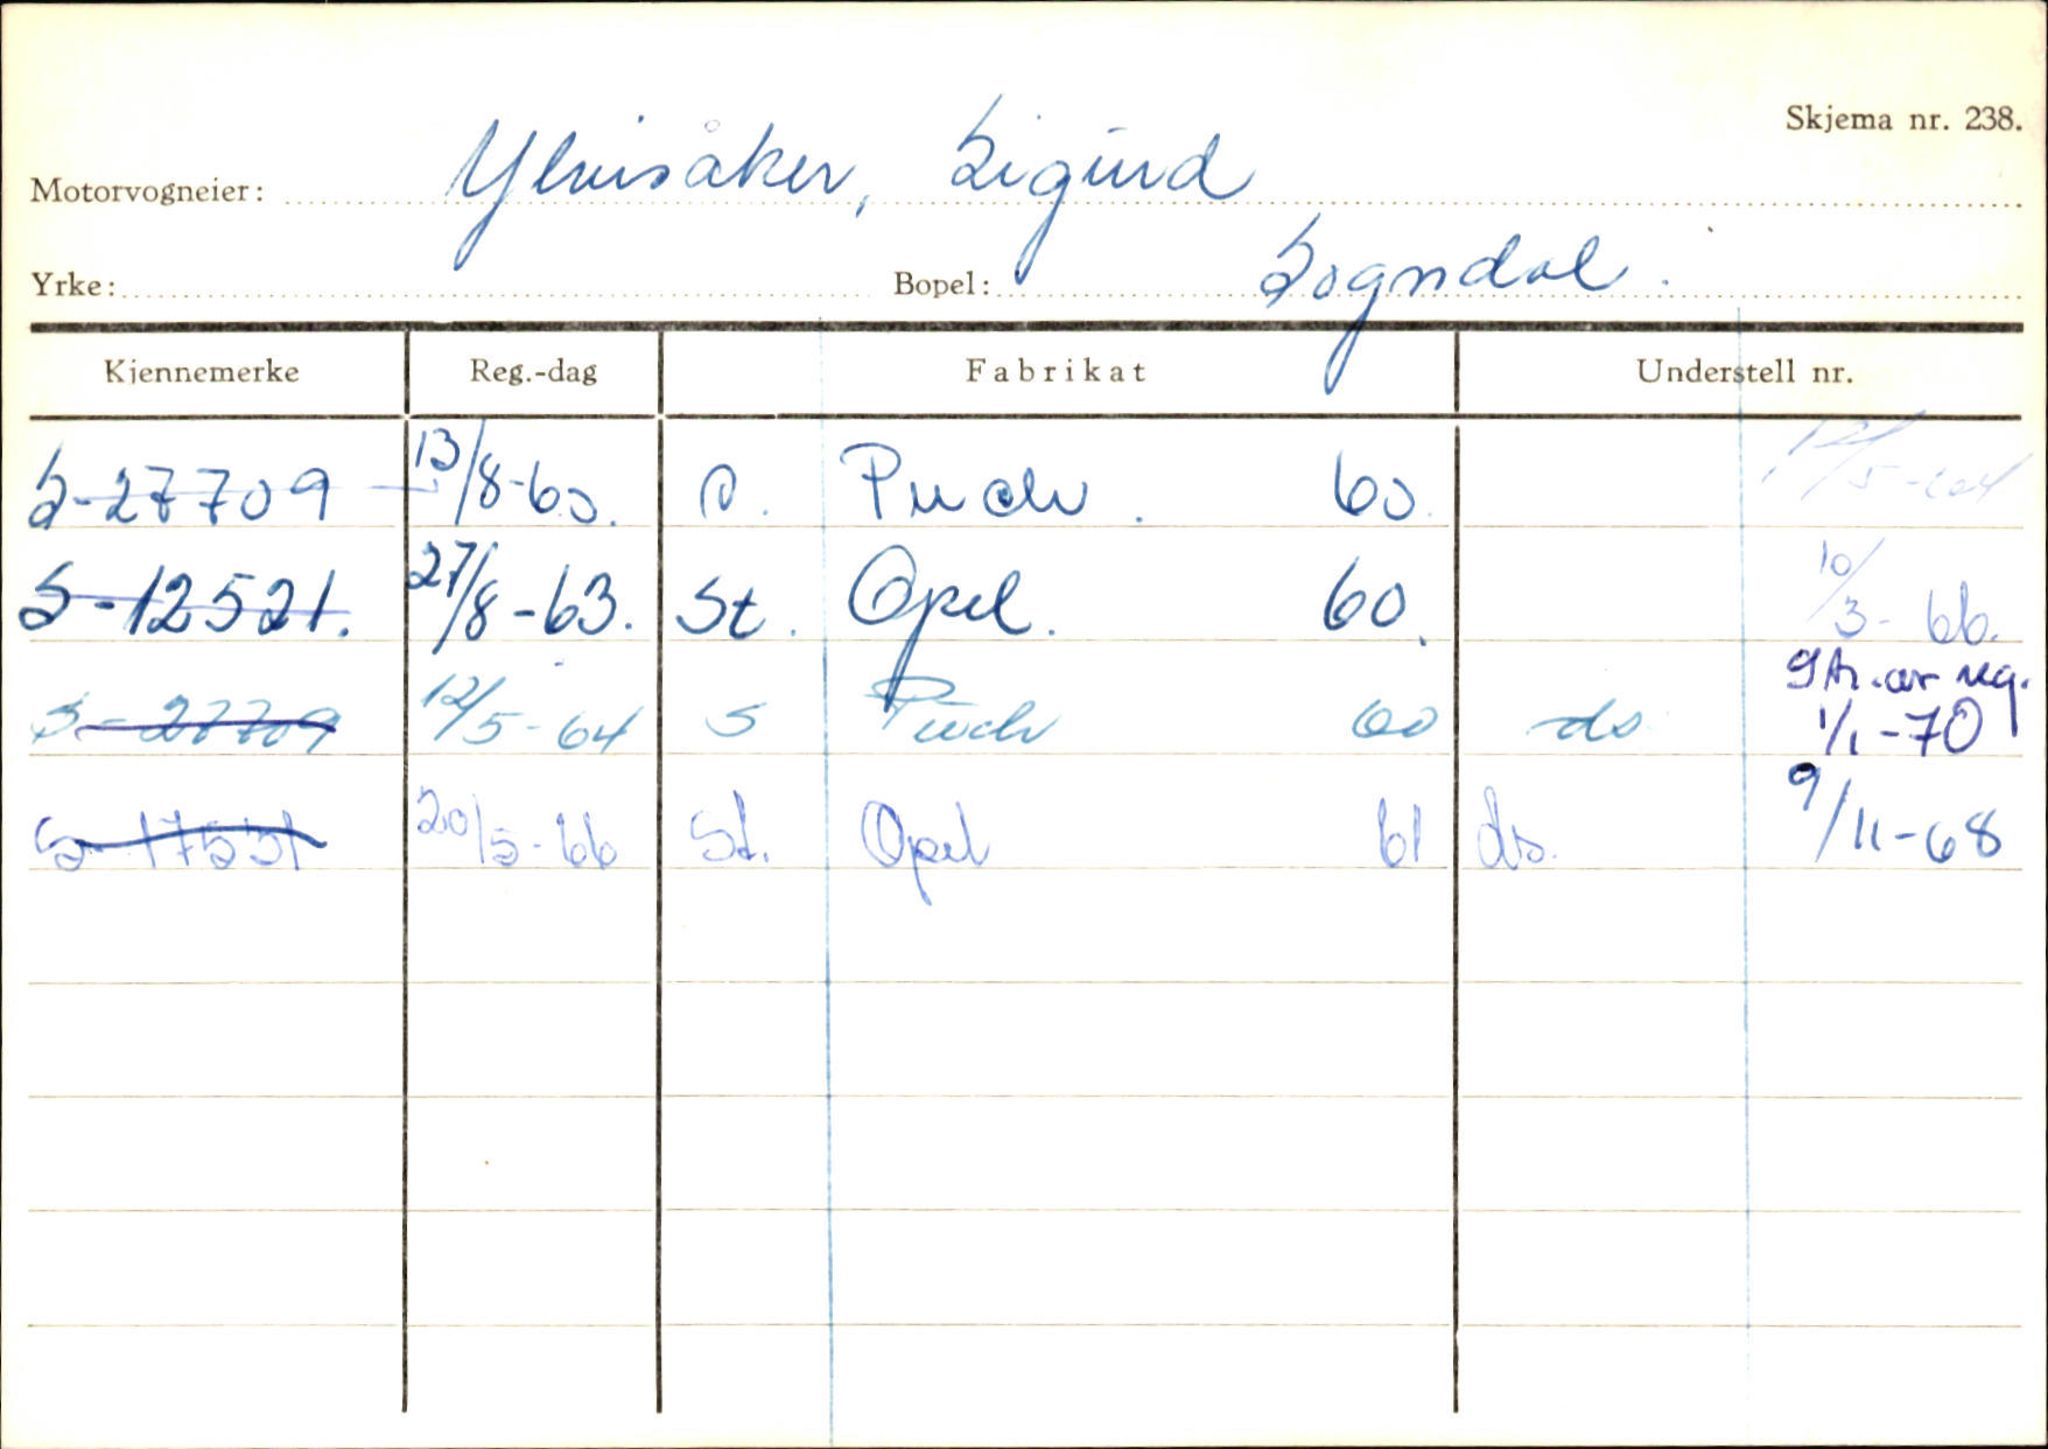 Skjema nr. 238.
Motorvogneier: Ylvisåker, Sigurd
Yrke: Bopel: Sogndal.
Kjennemerke Reg.-dag Fabrikat Understell nr.
S-27709 13/8-60. S. Puch. 60. 12/5-64
S-12521. 27/8-63. St. Opel. 60. 10/3-66.
Str. av reg.
S-27709 12/5-64 S Puch 60 ds 1/1-70
S-17551 20/5-66 St. Opel 61 ds. 9/11-68